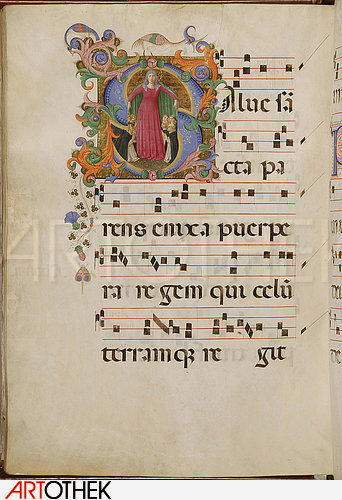 SAlue sã
cta pa
rens enixa puerpe
ra re gem qui celũ
terramqꝫ re git
ARTOTHEK
ARTOTHEK